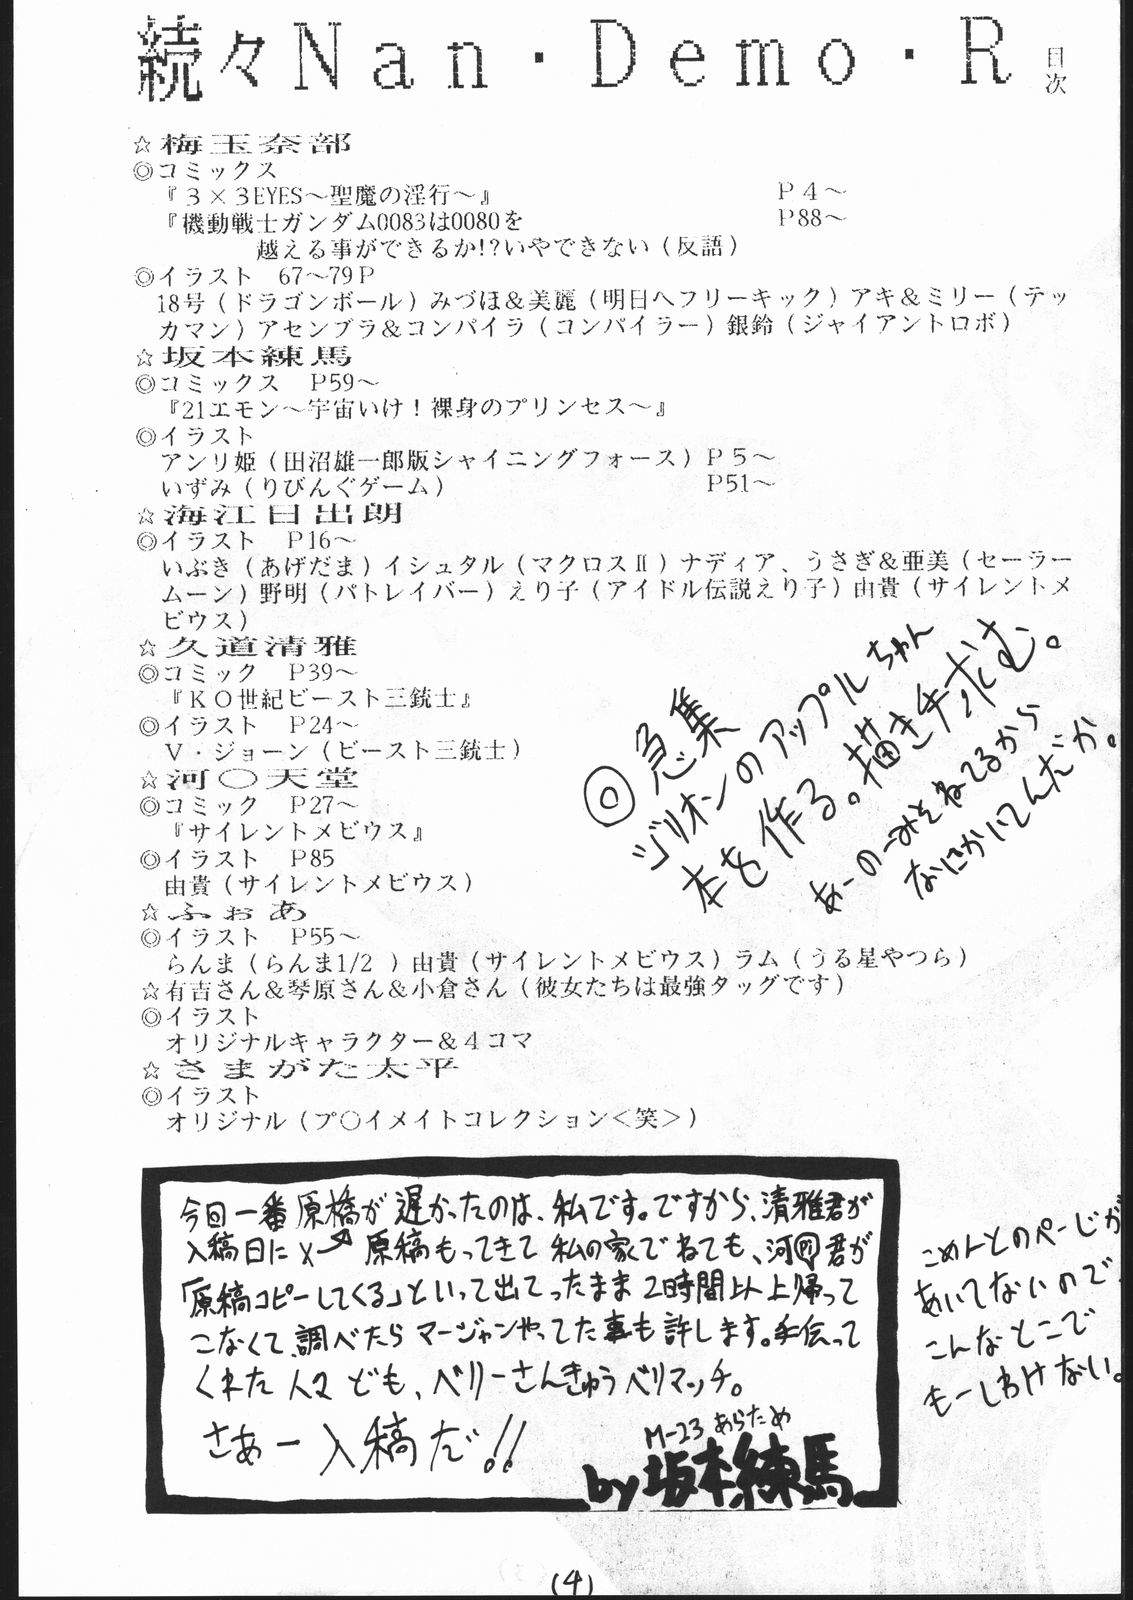 続々Nan・Demo・R 目次
☆梅玉奈部
◎コミックス
『3×3EYES～聖魔の淫行～』 P4～
『機動戦士ガンダム0083は0080を P88～
越える事ができるか!?いやできない（反語）
◎イラスト 67～79P
18号（ドラゴンボール）みづほ＆美麗（明日へフリーキック）アキ＆ミリー（テッ
カマン）アセンブラ＆コンパイラ（コンパイラー）銀鈴（ジャイアントロボ）
☆坂本練馬
◎コミックス P59～
『21エモン～宇宙いけ！裸身のプリンセス～』
◎イラスト
アンリ姫（田沼雄一郎版シャイニングフォース）P5～
いずみ（りびんぐゲーム） P51～
☆海江田出朗
◎イラスト P16～
いぶき（あげだま）イシュタル（マクロスⅡ）ナディア、うさぎ＆亜美（セーラー
ムーン）野明（パトレイバー）えり子（アイドル伝説えり子）由貴（サイレントメ
ビウス）
☆久道清雅
◎コミック P39～
『KO世紀ビースト三銃士』
◎イラスト P24～
V・ジョーン（ビースト三銃士）
☆河○天堂
◎コミック P27～
『サイレントメビウス』
◎イラスト P85
由貴（サイレントメビウス）
☆ふぉあ
◎イラスト P55～
らんま（らんま1/2 ）由貴（サイレントメビウス）ラム（うる星やつら）
☆有吉さん＆琴原さん＆小倉さん（彼女たちは最強タッグです）
◎イラスト
オリジナルキャラクター＆４コマ
☆さまがた太平
◎イラスト
オリジナル（プ○イメイトコレクション＜笑＞）
◎急集
ジリオンのアップルちゃん
本を作る。描き手求む。
あーのーみそねてるから
なにかいてんだか。
今回一番原橋が遅かったのは、私です。ですから、清雅君が
入稿日に 原稿もってきて私の家でねても、河 君が
「原稿コピーしてくる」といって出てったまま2時間以上帰って
こなくて、調べたらマージャンやってた事も許します。手伝って
くれた人々ども、ベリーさんきゅうベリマッチ。
さあー入稿だ!!
M-23 あらため
by 坂本練馬
こめんとのぺーじが
あいてないので、
こんなとこで
もーしわけない。
(4)